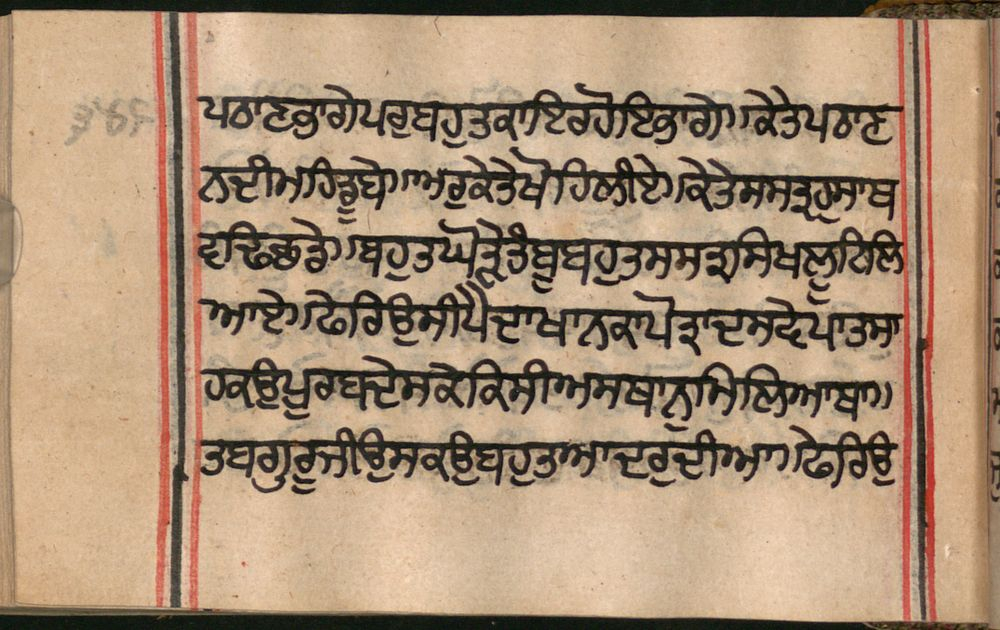 ਪਠਾਣਭਾਗੇਪਰੁਬਹੁਤਕਾਇਰਹੋਇਭਾਗੇ॥ਕੇਤੈਪਠਾਣ
ਨਦੀਮਹਿਡੂਬੇ॥ਅਰੁਕੇਤੇਖੋਹਿਲੀਏ॥ਕੇਤੇਸਸਤ੍ਰਹੁਸਾਥ
ਵਢਿਛਡੇ॥ਬਹੁਤਘੋੜੇਤੰਬੂਬਹੁਤਸਸਤ੍ਰਸਿਖਲੂਟਿਲਿ
ਆਏ॥ਫੇਰਿਉਸੀਪੈਦਾਖਾਨਕਾਪੋਤ੍ਰਾਦਸਵੇਪਾਤਸਾ
ਹਕਉਪੂਰਬਦੇਸਕੇਕਿਸੀਅਸਥਾਨੁਮਿਲਿਆਥਾ॥
ਤਬਗੁਰੂਜੀਉਸਕਉਬਹੁਤਆਦਰੁਦੀਆ॥ਫੇਰਿਉ